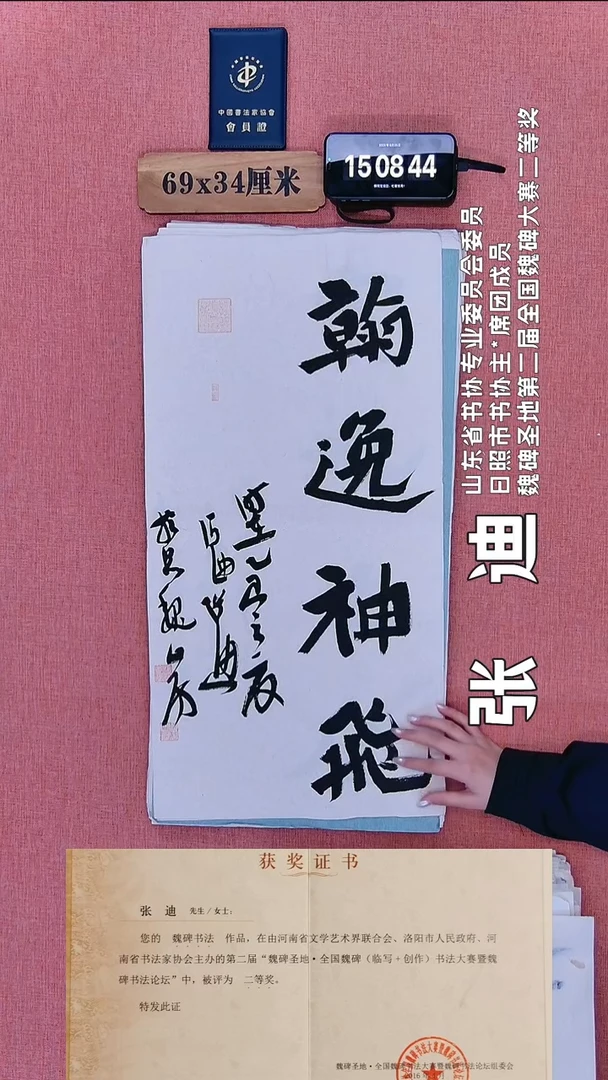 中國書法家協會
會員證
69x34厘米
15 08 44
翰逸神飛
山东省书协专业委员会委员
日照市书协主*席团成员
魏碑圣地第二届全国魏碑大赛二等奖
张迪
获奖证书
张 迪 先生/女士:
您的 魏碑书法 作品，在由河南省文学艺术界联合会、洛阳市人民政府、河
南省书法家协会主办的第二届“魏碑圣地·全国魏碑（临写+创作）书法大赛暨魏
碑书法论坛”中，被评为 二等奖。
特发此证
魏碑圣地·全国魏碑书法大赛暨魏碑书法论坛组委会